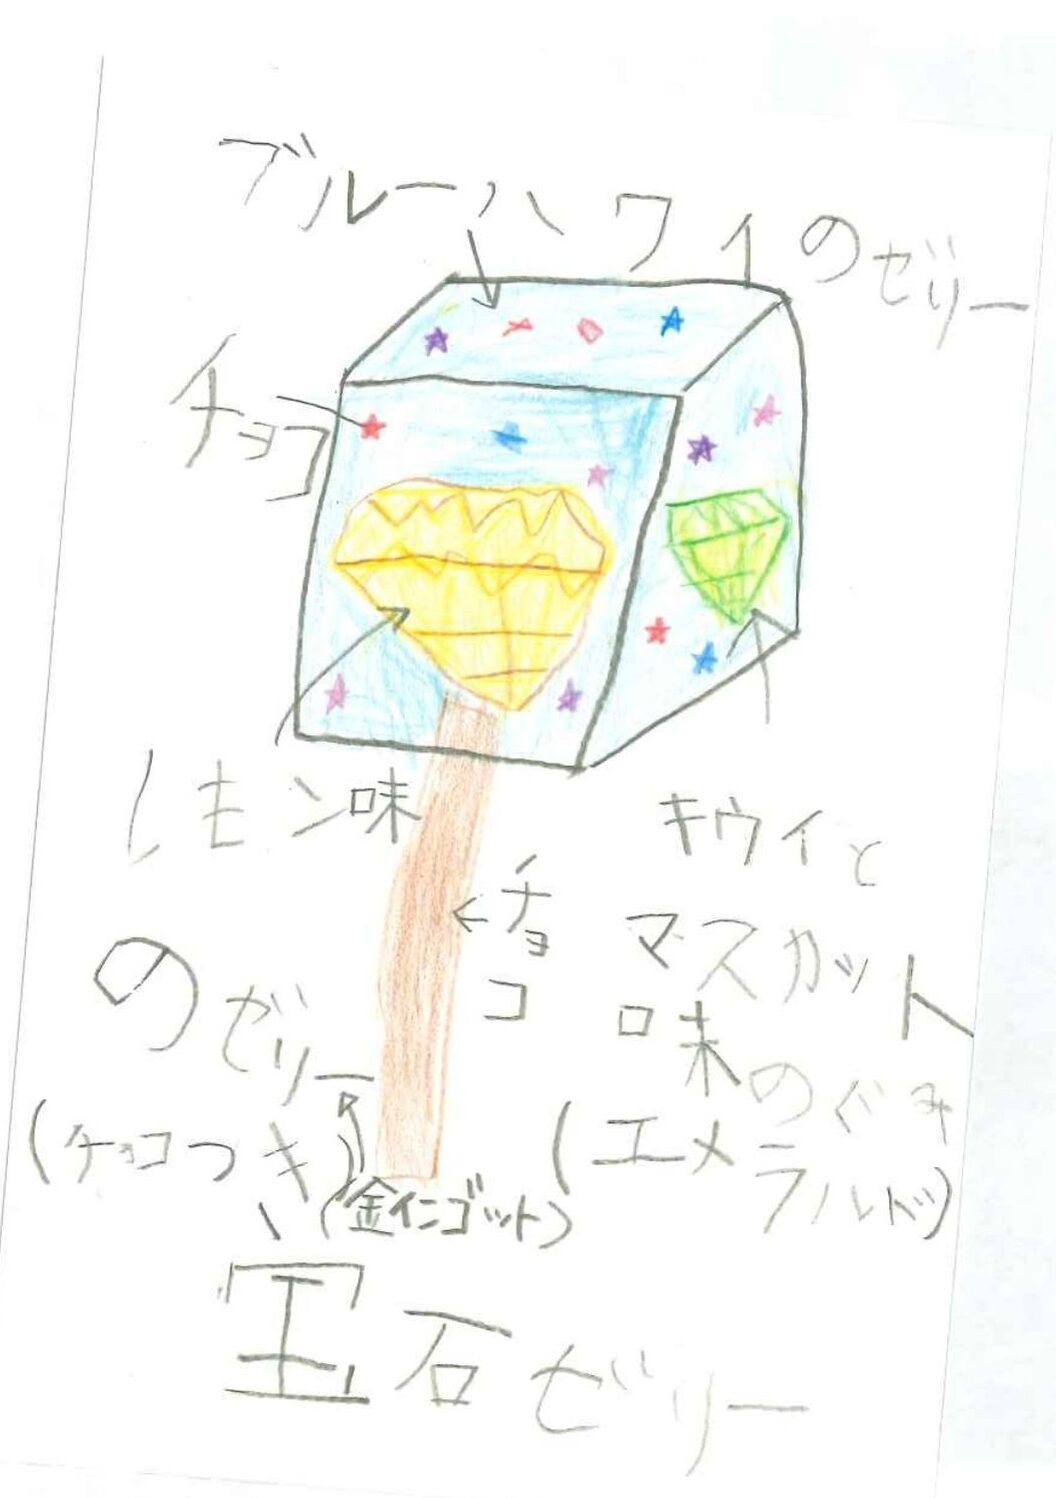 ブルーハワイのゼリー
チョコ
レモン味
のゼリー
(チョコつき)
(金インゴット)
チョコ
キウイと
マスカット
味のぐみ
(エメラルド)
宝石ゼリー